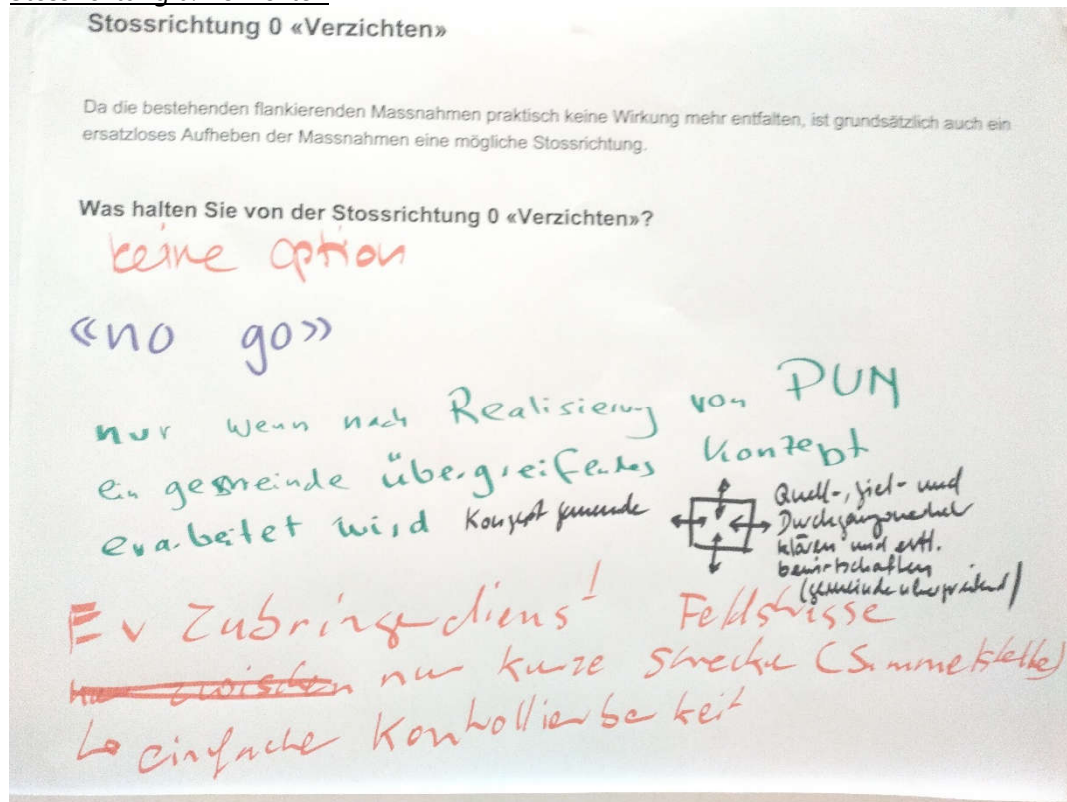 Stossrichtung 0 «Verzichten»
Da die bestehenden flankierenden Massnahmen praktisch keine Wirkung mehr entfalten, ist grundsätzlich auch ein
ersatzloses Aufheben der Massnahmen eine mögliche Stossrichtung.
Was halten Sie von der Stossrichtung 0 «Verzichten»?
keine option
«no go»
nur wenn nach Realisierung von PUM
ein gemeinde übergreifendes Konzept
erarbeitet wird Konzept
Quell-, Ziel- und
Durchgangsverkehr
klären und evtl.
bewirtschaften
(gemeindeübergreifend)
Ev Zubringerdienst
nur kurze Strecke
↳ einfache Kontrollierbarkeit